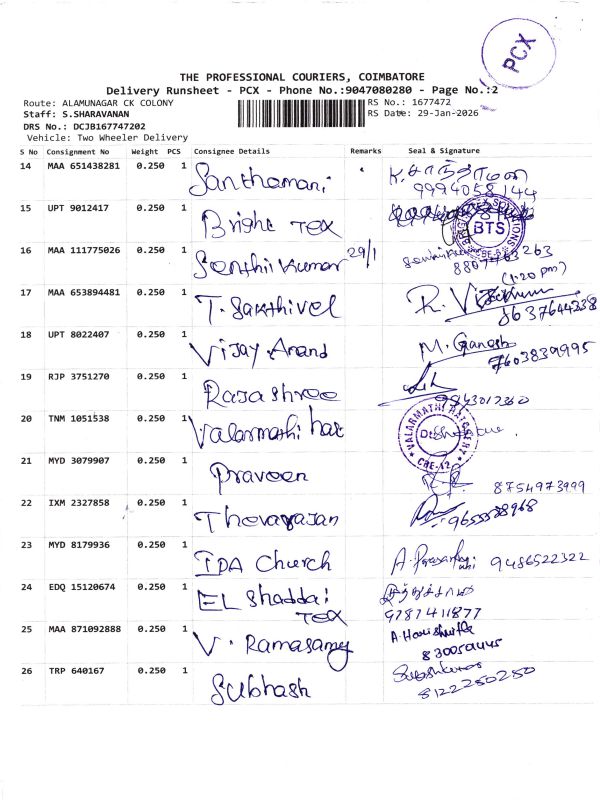 PCX
THE PROFESSIONAL COURIERS, COIMBATORE
Delivery Runsheet - PCX - Phone No.:9047080280 - Page No.:2
Route: ALAMUNAGAR CK COLONY RS No.: 1677472
Staff: S.SHARAVANAN RS Date: 29-Jan-2026
DRS No.: DCJB167747202
Vehicle: Two Wheeler Delivery
S No Consignment No Weight PCS Consignee Details Remarks Seal & Signature
14 MAA 651438281 0.250 1 Santhamani
9994058144
15 UPT 9012417 0.250 1 Bright TEX BTS
16 MAA 111775026 0.250 1 Senthil Kumar 29/1
(1:20 pm)
17 MAA 653894481 0.250 1 T. Sakthivel R.
8637644338
18 UPT 8022407 0.250 1 Vijay Anand M. Ganesh
7603839995
19 RJP 3751270 0.250 1 Rajashree
9943012360
20 TNM 1051538 0.250 1 Valarmathi hat VALARMATHI CBE-12
21 MYD 3079907 0.250 1 Praveen
8754973999
22 IXM 2327858 0.250 1 Thevarajan
23 MYD 8179936 0.250 1 IPA Church 9486522322
24 EDQ 15120674 0.250 1 EL Shaddai
TEX 9787411877
25 MAA 871092888 0.250 1 V. Ramasamy
26 TRP 640167 0.250 1 Subhash
8122250250